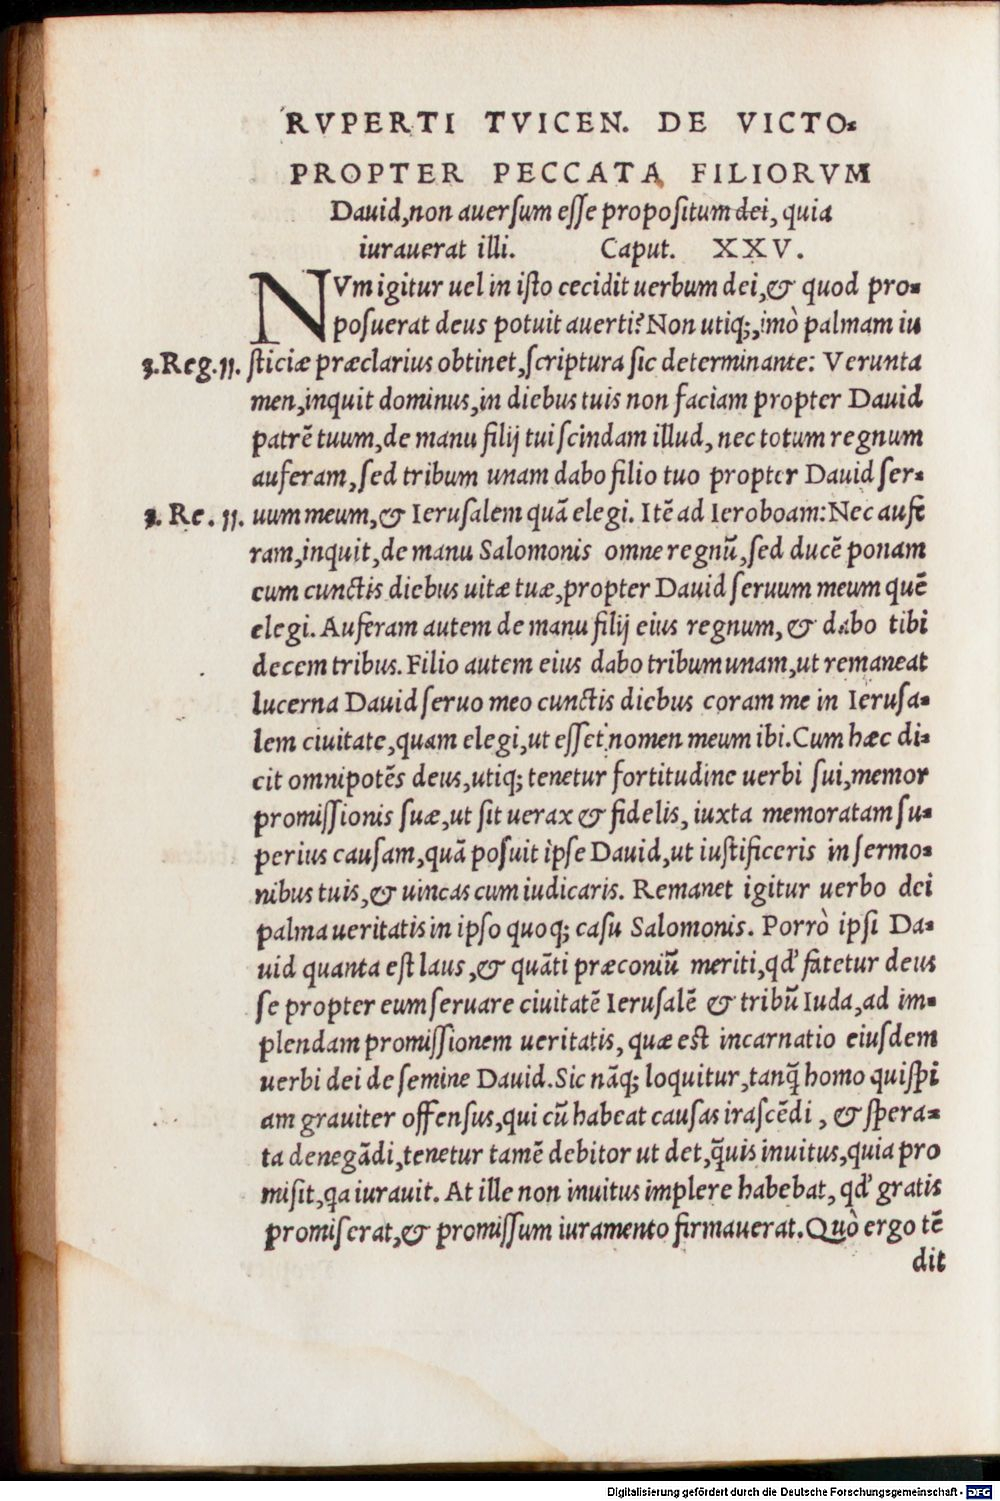 RVPERTI TVICEN. DE VICTO-
PROPTER PECCATA FILIORVM
Dauid, non auersum esse propositum dei, quia
iurauerat illi. Caput. XXV.
NVm igitur uel in isto cecidit uerbum dei, & quod pro-
posuerat deus potuit auerti? Non utiq;, imò palmam iu
3. Reg. 11. sticiæ præclarius obtinet, scriptura sic determinante: Verunta
men, inquit dominus, in diebus tuis non faciam propter Dauid
patrẽ tuum, de manu filij tui scindam illud, nec totum regnum
auferam, sed tribum unam dabo filio tuo propter Dauid ser-
3. Re. 11. uum meum, & Ierusalem quã elegi. Itẽ ad Ieroboam: Nec aufe
ram, inquit, de manu Salomonis omne regnũ, sed ducẽ ponam
cum cunctis diebus uitæ tuæ, propter Dauid seruum meum quẽ
elegi. Auferam autem de manu filij eius regnum, & dabo tibi
decem tribus. Filio autem eius dabo tribum unam, ut remaneat
lucerna Dauid seruo meo cunctis diebus coram me in Ierusa-
lem ciuitate, quam elegi, ut esset nomen meum ibi. Cum hæc di-
cit omnipotẽs deus, utiq; tenetur fortitudine uerbi sui, memor
promissionis suæ, ut sit uerax & fidelis, iuxta memoratam su-
perius causam, quã posuit ipse Dauid, ut iustificeris in sermo-
nibus tuis, & uincas cum iudicaris. Remanet igitur uerbo dei
palma ueritatis in ipso quoq; casu Salomonis. Porrò ipsi Da-
uid quanta est laus, & quãti præconiũ meriti, qd' fatetur deus
se propter eum seruare ciuitatẽ Ierusalẽ & tribũ Iuda, ad im-
plendam promissionem ueritatis, quæ est incarnatio eiusdem
uerbi dei de semine Dauid. Sic nãq; loquitur, tanq̃ homo quispi
am grauiter offensus, qui cũ habeat causas irascẽdi, & spera-
ta denegãdi, tenetur tamẽ debitor ut det, q̃uis inuitus, quia pro
misit, qa iurauit. At ille non inuitus implere habebat, qd' gratis
promiserat, & promissum iuramento firmauerat. Quò ergo tẽ
dit
Digitalisierung gefördert durch die Deutsche Forschungsgemeinschaft - DFG